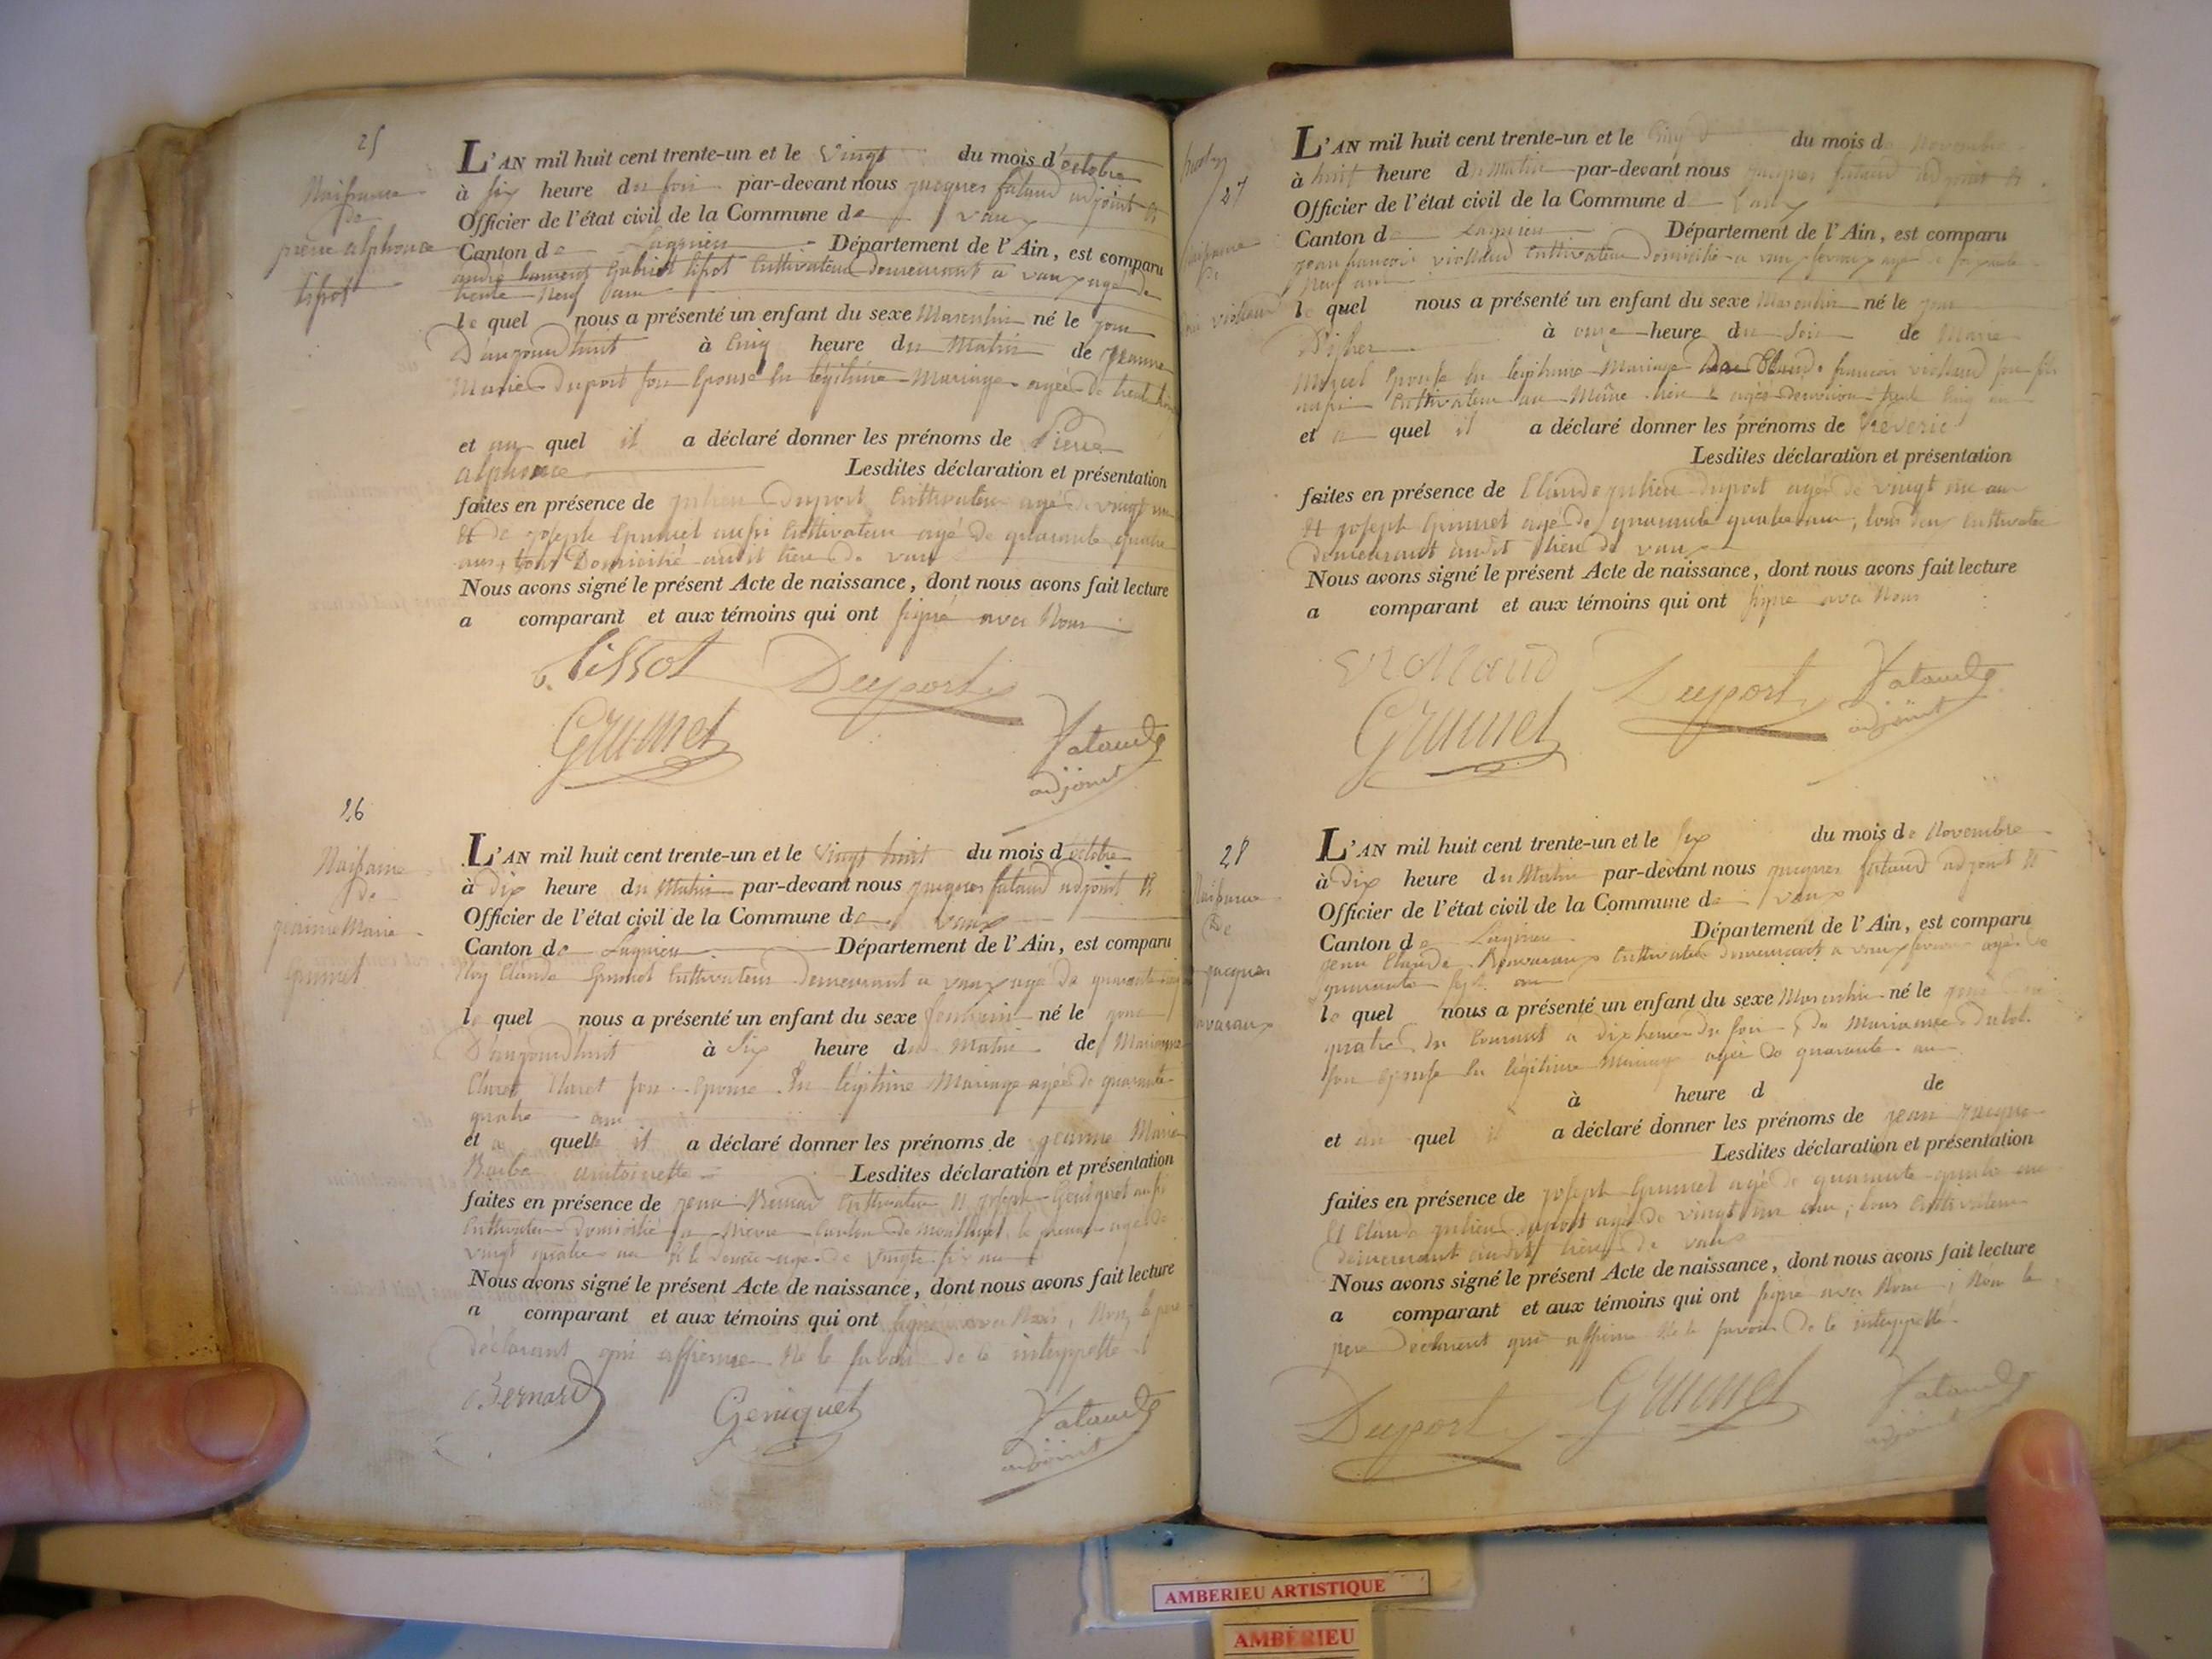 25
Naissance
de
pierre alphonce
tissot
L'AN mil huit cent trente-un et le vingt du mois d'octobre
à six heure du soir par-devant nous jacques fataud adjoint et
Officier de l'état civil de la Commune de vaux
Canton de Lagnieu Département de l'Ain, est comparu
andré laurent Gabriel tissot Cultivateur demeurant a vaux agé de
trente neuf ans
le quel nous a présenté un enfant du sexe Masculin né le jour
D'aujourdhuit à Cinq heure du Matin de jeanne
Marie duport son Epouse En légitime Mariage agée de trente
et au quel il a déclaré donner les prénoms de Pierre
alphonce Lesdites déclaration et présentation
faites en présence de julien Duport Cultivateur agé de vingt un
et de joseph Grumet aussi Cultivateur agé de quarante quatre
ans, tous Domicilié audit lieu de vaux
Nous avons signé le présent Acte de naissance, dont nous avons fait lecture
a comparant et aux témoins qui ont signé avec Nous
Tissot Duport
Grumet
fataud
adjoint
26
Naissance
de
jeanne Marie
grumet
L'AN mil huit cent trente-un et le vingt huit du mois d'octobre
à Dix heure du Matin par-devant nous jacques fataud adjoint et
Officier de l'état civil de la Commune de vaux
Canton de Lagnieu Département de l'Ain, est comparu
Claude Grumet Cultivateur demeurant a vaux agé de quarante
le quel nous a présenté un enfant du sexe feminin né le jour
D'aujourdhuit à Six heure du Matin de
Claret son Epouse En légitime Mariage agée de quarante
quatre ans
et a quelle il a déclaré donner les prénoms de jeanne Marie
antoinette Lesdites déclaration et présentation
faites en présence de jean Bernard Cultivateur et joseph Geniquet aussi
Cultivateur domicilié a Canton de Montluel, le premier agé de
vingt quatre ans et le agé de vingt six ans
Nous avons signé le présent Acte de naissance, dont nous avons fait lecture
a comparant et aux témoins qui ont signé avec Nous, Non le pere
déclarant qui affirme Ne le savoir de ce interppellé
Bernard Geniquet fataud
adjoint
27
Naissance
de
viollaud
L'AN mil huit cent trente-un et le Cinq du mois de Novembre
à huit heure du Matin par-devant nous jacques fataud adjoint et
Officier de l'état civil de la Commune de vaux
Canton de Lagnieu Département de l'Ain, est comparu
jean francois viollaud Cultivateur Domicilié a vaux agé de soixante
neuf ans
le quel nous a présenté un enfant du sexe Masculin né le jour
D'hier à onze heure du Soir de Marie
Epouse En légitime Mariage De Claude francois viollaud son fils
aussi Cultivateur au Même lieu agée d'environ trente Cinq ans
et a quel il a déclaré donner les prénoms de
Lesdites déclaration et présentation
faites en présence de Claude julien duport agé de vingt un ans
et joseph Grumet agé de quarante quatre ans, tous deux Cultivateur
demeurant audit lieu de vaux
Nous avons signé le présent Acte de naissance, dont nous avons fait lecture
a comparant et aux témoins qui ont signé avec Nous
viollaud Duport fataud
Grumet adjoint
28
Naissance
De
jacques
L'AN mil huit cent trente-un et le Six du mois de Novembre
à Dix heure du Matin par-devant nous jacques fataud adjoint et
Officier de l'état civil de la Commune de vaux
Canton de Lagnieu Département de l'Ain, est comparu
jean Claude Cultivateur demeurant a vaux agé de
quarante sept ans
le quel nous a présenté un enfant du sexe Masculin né le
quatre du Courant a dix heure du soir, de Marianne
son Epouse En légitime Mariage agée de quarante ans
à heure d de
et au quel il a déclaré donner les prénoms de jean jacques
Lesdites déclaration et présentation
faites en présence de joseph Grumet agé de quarante quatre ans
et Claude julien duport agé de vingt un ans, tous Cultivateur
demeurant audit lieu de vaux
Nous avons signé le présent Acte de naissance, dont nous avons fait lecture
a comparant et aux témoins qui ont signé avec Nous, Non le
pere déclarant qui affirme Ne le savoir De ce interppellé
Duport Grumet fataud
adjoint
AMBERIEU ARTISTIQUE
AMBERIEU